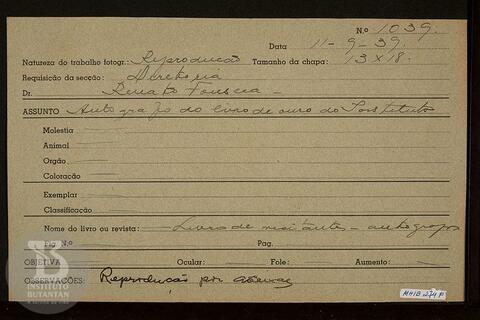 N.º 1039.
Data 11-9-39.
Natureza do trabalho fotogr.: Reprodução Tamanho da chapa: 13 x 18.
Requisição da secção: Directoria
Dr. Renato Fonseca
ASSUNTO Autografo do livro de ouro do Instituto
Molestia
Animal
Orgão
Coloração
Exemplar
Classificação
Nome do livro ou revista: Livro de visitantes - autografos
Fig. N.º Pag.
OBJETIVA Ocular: Fole: Aumento:
OBSERVAÇÕES: Reprodução por
INSTITUTO
BUTANTAN
A SERVIÇO DA VIDA
MHIB 274 F